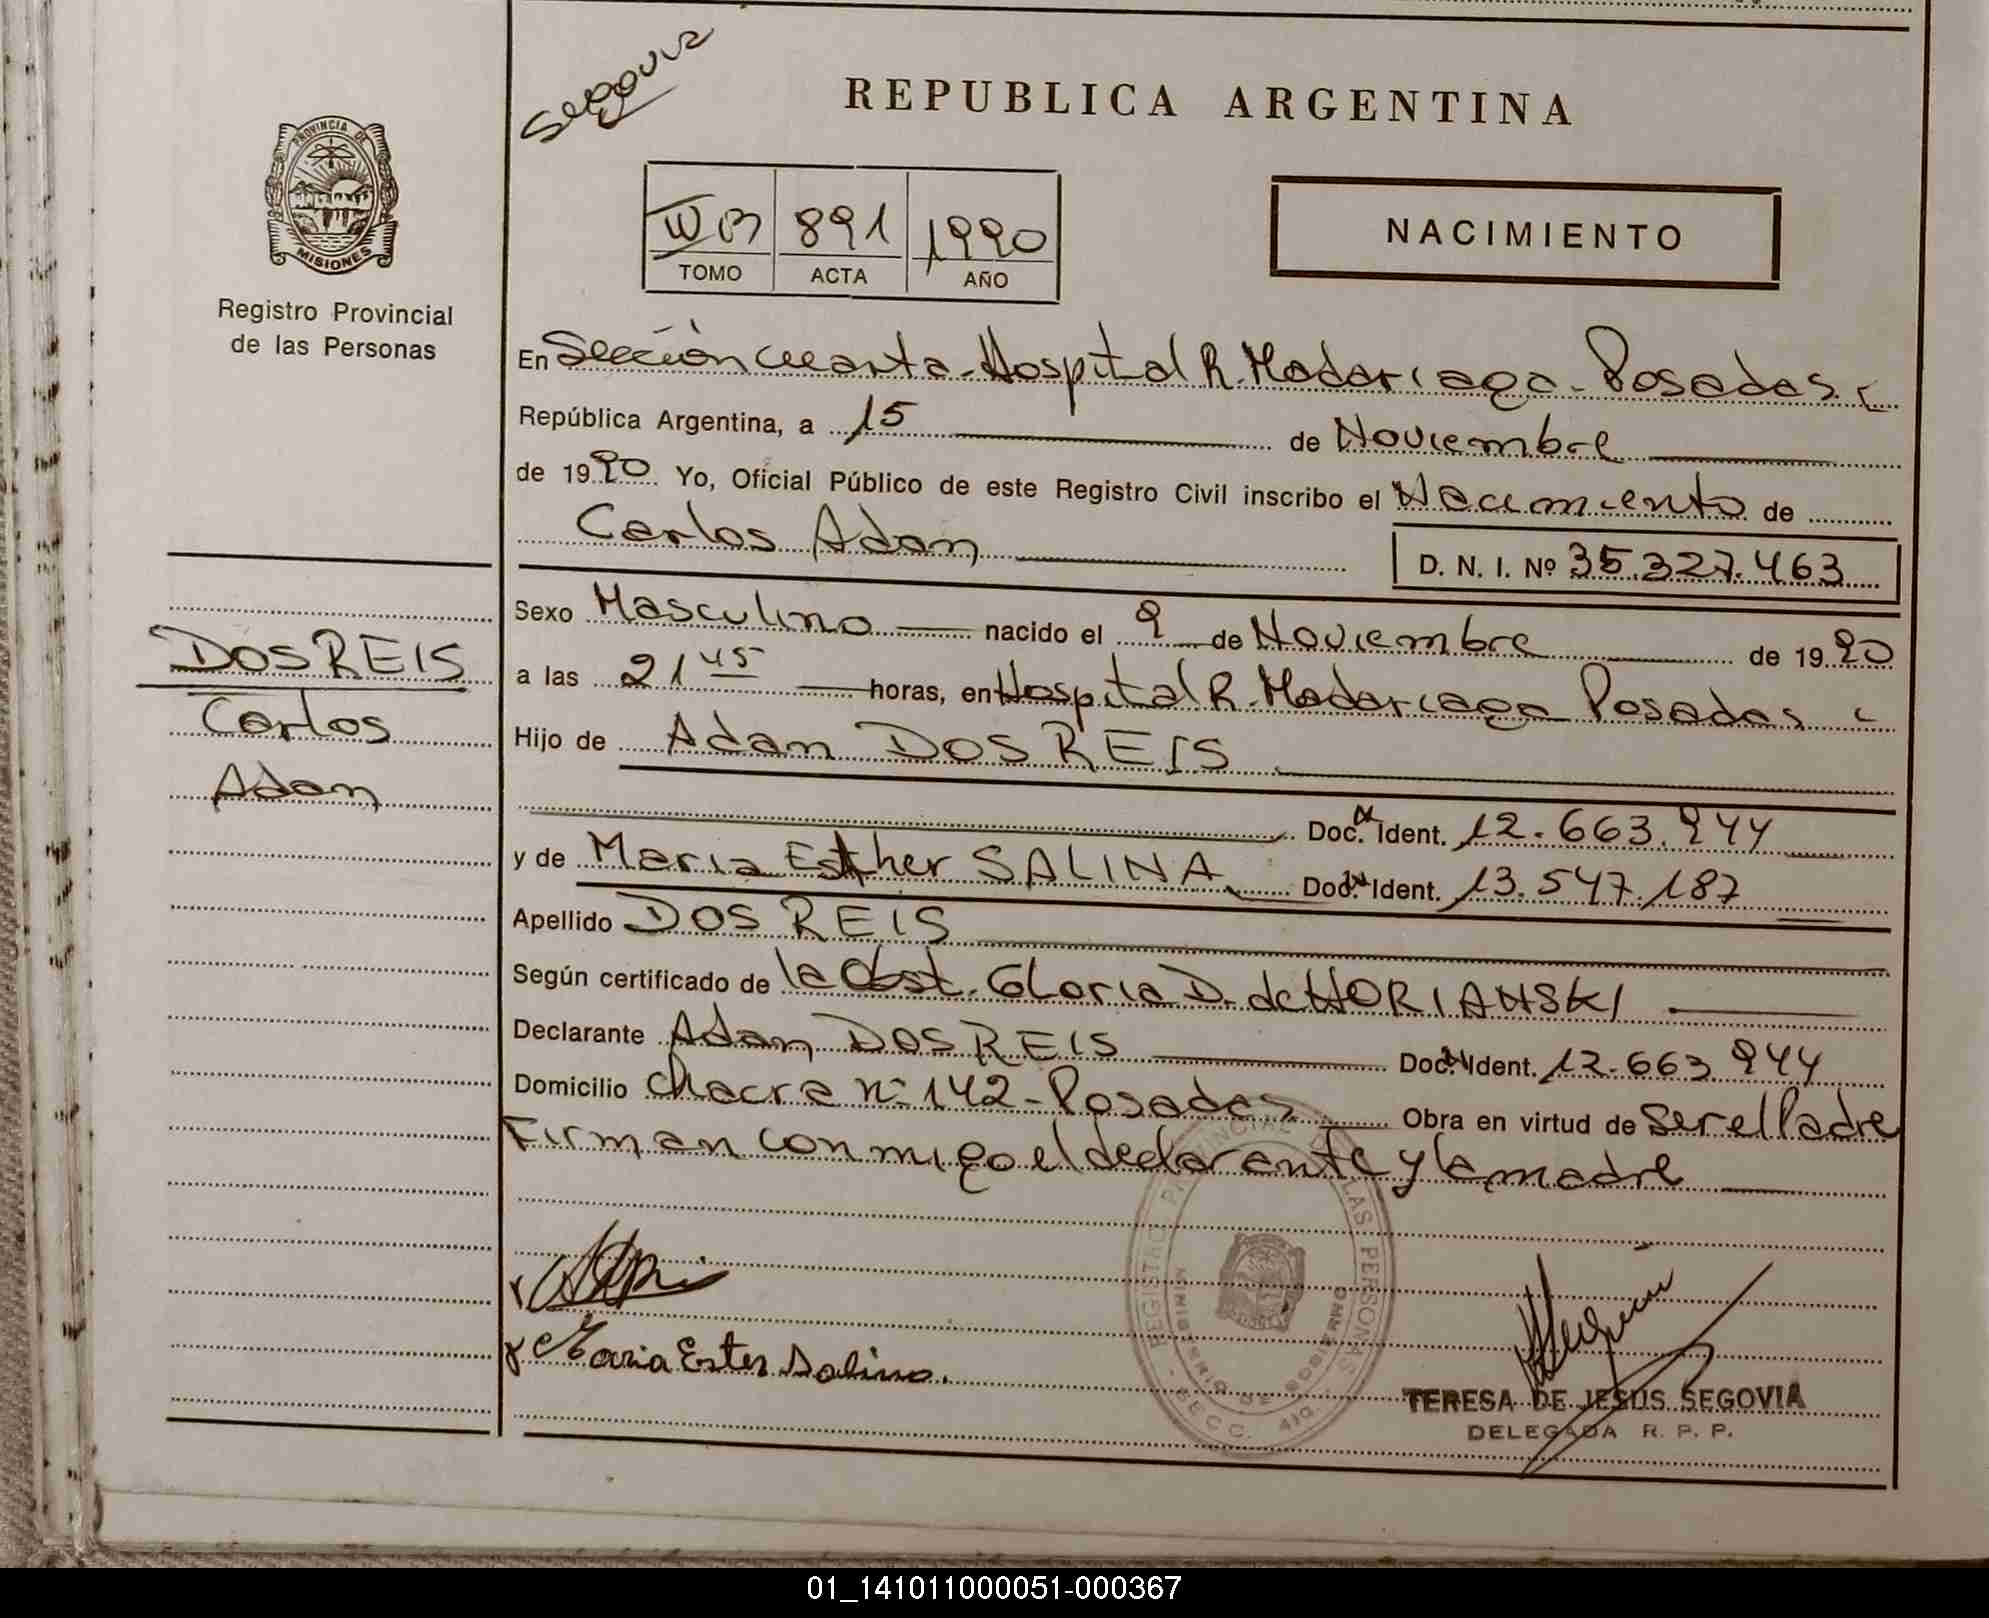 Segovia
REPUBLICA ARGENTINA
PROVINCIA DE
MISIONES
Registro Provincial
de las Personas
891 1990
TOMO ACTA AÑO
NACIMIENTO
En Sección cuarta-Hospital R. Madariaga-Posadas
República Argentina, a 15 de Noviembre
de 1990 Yo, Oficial Público de este Registro Civil inscribo el Nacimiento de
Carlos Adan
D. N. I. Nº 35.327.463
Sexo Masculino nacido el 9 de Noviembre de 1990
a las 21 45 horas, en Hospital R. Madariaga Posadas
Hijo de Adan DOS REIS
Doc. Ident. 12.663.944
y de Maria Esther SALINA Doc. Ident. 13.547.187
Apellido DOS REIS
Según certificado de la Obst. Gloria D. de HORIANSKI
Declarante Adan DOS REIS Doc. Ident. 12.663.944
Domicilio chacra nº 142-Posadas Obra en virtud de ser el Padre
Firman conmigo el declarante y la madre
DOS REIS
Carlos
Adan
Maria Ester Salina.
REGISTRO PROVINCIAL DE LAS PERSONAS
MINISTERIO DE GOBIERNO
SECC. 4ta.
TERESA DE JESUS SEGOVIA
DELEGADA R. P. P.
01_141011000051-000367